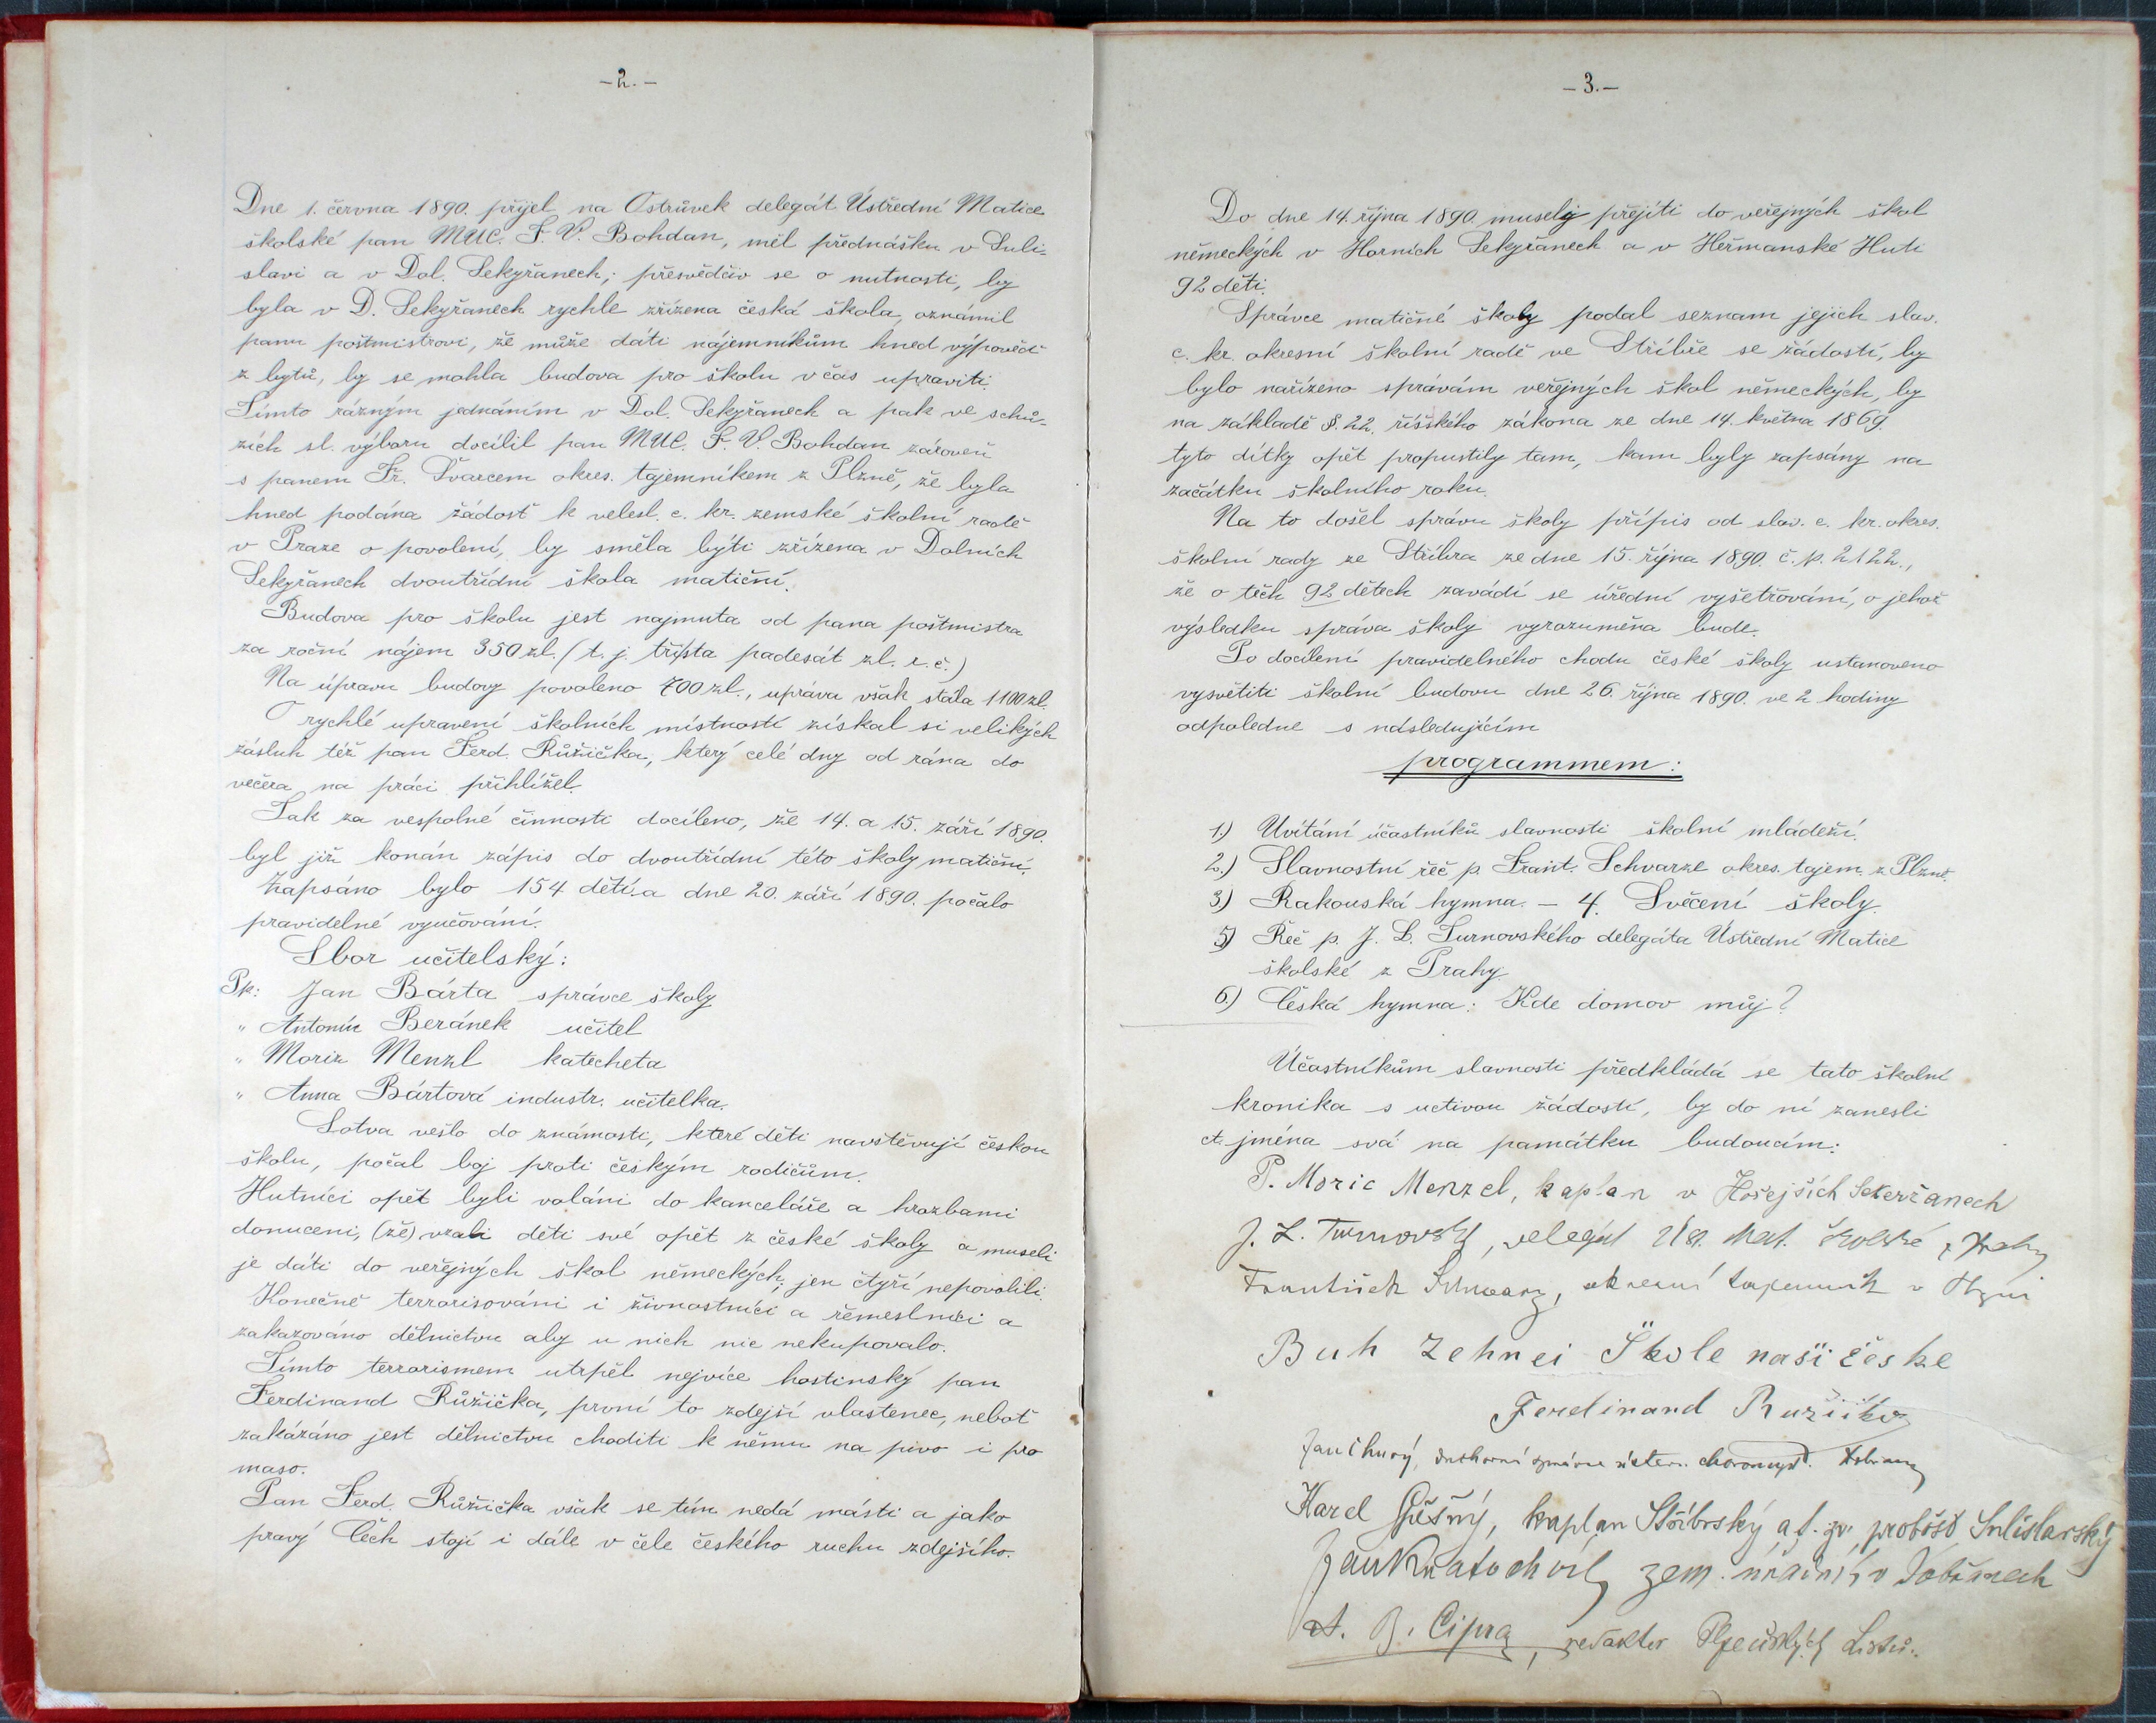 -2.-
Dne 1. června 1890. přijel na Ostrůvek delegát Ústřední Matice
školské pan MUC. F. V. Bohdan, měl přednášku v Suli-
slavi a v Dol. Sekyřanech; přesvědčiv se o nutnosti, by
byla v D. Sekyřanech rychle zřízena česká škola, oznámil
panu poštmistrovi, že může dáti nájemníkům hned výpověď
z bytů, by se mohla budova pro školu včas upraviti.
Tímto rázným jednáním v Dol. Sekyřanech a pak ve schů-
zích sl. výboru docílil pan MUC. F. V. Bohdan zároveň
s panem Fr. Švarcem okres. tajemníkem z Plzně, že byla
hned podána žádosť k velesl. c. kr. zemské školní radě
v Praze o povolení, by směla býti zřízena v Dolních
Sekyřanech dvoutřídní škola matiční.
Budova pro školu jest najmuta od pana poštmistra
za roční nájem 350 zl. (t. j. třista padesát zl. r. č.)
Na úpravu budovy povoleno 700 zl., úprava však stála 1100 zl.
O rychlé upravení školních místností získal si velikých
zásluh též pan Ferd. Růžička, který celé dny od rána do
večera na práci přihlížel.
Tak za vespolné činnosti docíleno, že 14. a 15. září 1890.
byl již konán zápis do dvoutřídní této školy matiční.
Zapsáno bylo 154 dětí a dne 20. září 1890. počalo
pravidelné vyučování.
Sbor učitelský:
Pp: Jan Bárta správce školy
" Antonín Beránek učitel
" Moriz Menzl katecheta
" Anna Bártová industr. učitelka.
Sotva vešlo do známosti, které děti navštěvují českou
školu, počal boj proti českým rodičům.
Hutníci opět byli voláni do kanceláře a hrozbami
donuceni, (že) vzali děti své opět z české školy a museli
je dáti do veřejných škol německých; jen čtyři nepovolili.
Konečně terrorisováni i živnostníci a řemeslníci a
zakazováno dělnictvu aby u nich nic nekupovalo.
Tímto terrorismem utrpěl nejvíce hostinský pan
Ferdinand Růžička, první to zdejší vlastenec, neboť
zakázáno jest dělnictvu choditi k němu na pivo i pro
maso.
Pan Ferd. Růžička však se tím nedá másti a jako
pravý Čech stojí i dále v čele českého ruchu zdejšího.
-3.-
Do dne 14. října 1890. musely přejíti do veřejných škol
německých v Horních Sekyřanech a v Heřmanské Huti
92 dětí.
Správce matičné školy podal seznam jejich slav.
c. kr. okresní školní radě ve Stříbře se žádostí, by
bylo nařízeno správám veřejných škol německých, by
na základě §. 22. říšského zákona ze dne 14. května 1869.
tyto dítky opět propustily tam, kam byly zapsány na
začátku školního roku.
Na to došel správu školy přípis od slav. c. kr. okres.
školní rady ze Stříbra ze dne 15. října 1890. č. p. 2122.,
že o těch 92 dětech zavádí se úřední vyšetřování, o jehož
výsledku správa školy vyrozuměna bude.
Po docílení pravidelného chodu české školy ustanoveno
vysvětiti školní budovu dne 26. října 1890. ve 2 hodiny
odpoledne s následujícím
programmem:
1.) Uvítání účastníků slavnosti školní mládeží.
2.) Slavnostní řeč p. Frant. Schvarze okres. tajem. z Plzně.
3.) Rakouská hymna. - 4. Svěcení školy.
5.) Řeč p. J. L. Turnovského delegáta Ústřední Matice
školské z Prahy.
6.) Česká hymna: Kde domov můj?
Účastníkům slavnosti předkládá se tato školní
kronika s uctivou žádostí, by do ní zanesli
ct. jména svá na památku budoucím:
P. Moric Menzel, kaplan v Hořejších Sekeržanech
J. L. Turnovský, delegát Úst. Mat. Školské z Prahy
František Schwarz, okresní tajemník v Plzni
Buh Zehnei Škole naší česke
Ferdinand Ružička
Jan duchovní správce ústavu choromysl. Dobřany
Karel kaplan Stříbrský a t. zv. probošt Sulislavský
Jan Kratochvíl, zem. úředník v Dobřanech
A. B. Cipra, redaktor Plzeňských Listů.